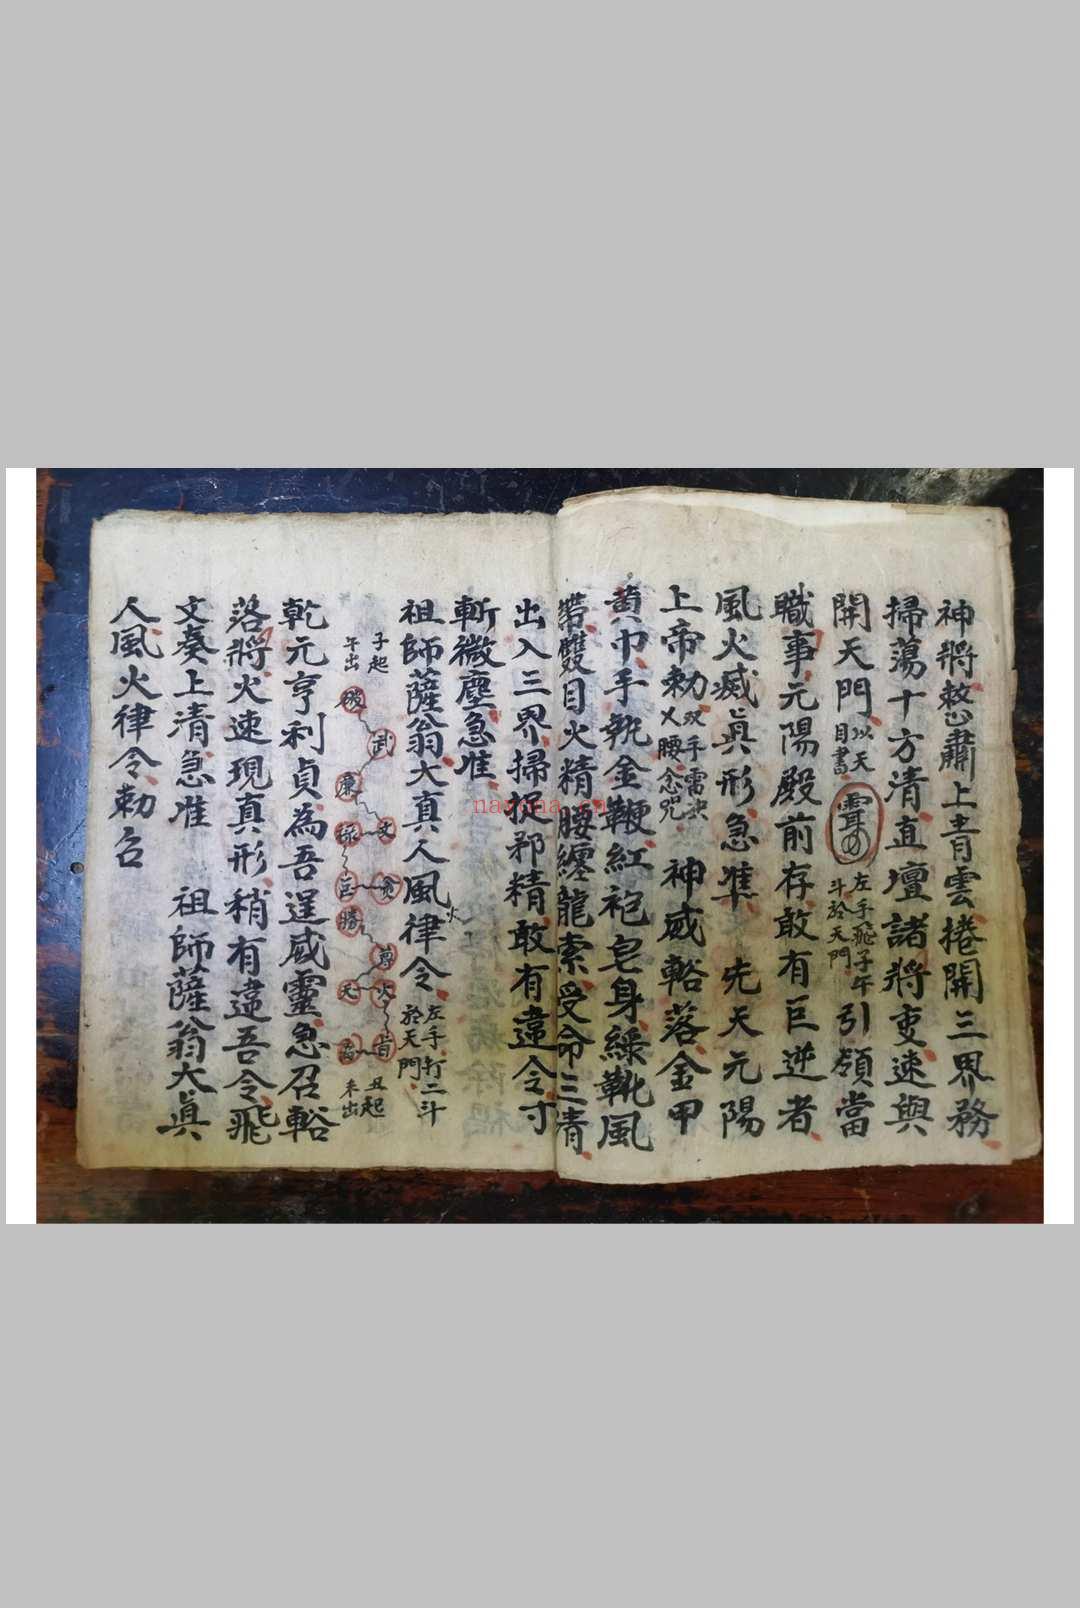 神將整肅上青雲捲開三界務
掃蕩十方清直壇諸將吏速與
開天門以天目書
左手飛子午斗於天門引領當
職事元陽殿前存敢有巨逆者
風火滅眞形急準 先天元陽
上帝勅双手雷決乂腰念咒 神威豁落金甲
黃巾手執金鞭紅袍皂身綠靴風
帶雙目火精腰纏龍索受命三清
出入三界掃捉邪精敢有違令寸
斬微塵急准
祖師薩翁大真人風火律令左手打二斗於天門
子起午出
破武廉文祿貪巨勝尊天火
丑起未出
乾元亨利貞為吾逞威靈急召豁
落將火速現真形稍有違吾令飛
文奏上清急准 祖師薩翁大眞
人風火律令勅召
nayona.cn